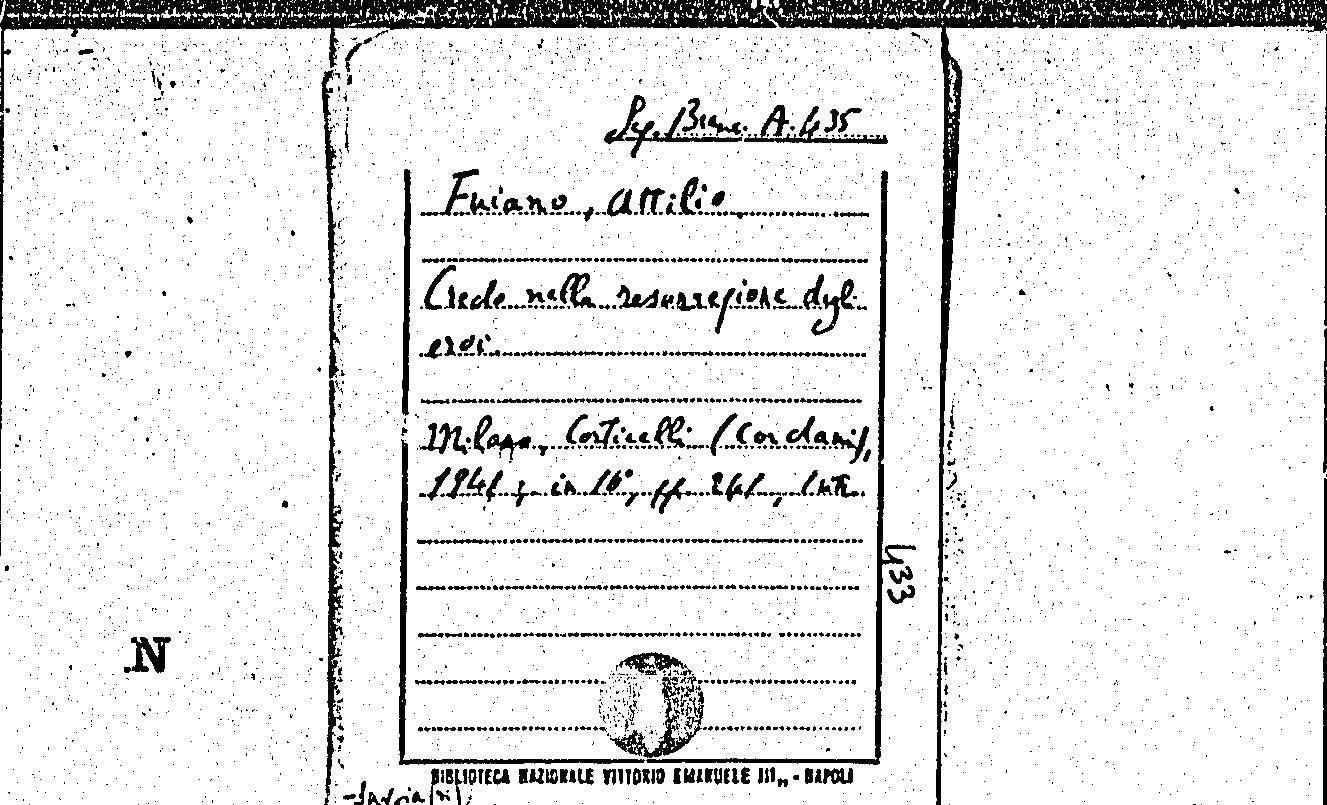 A. 435
Fuiano, Attilio
Credo nella resurrezione degli
eroi.
Milano, Corticelli (Cordani),
in 16°, pp.
433
N
BIBLIOTECA NAZIONALE VITTORIO EMANUELE III„ - NAPOLI